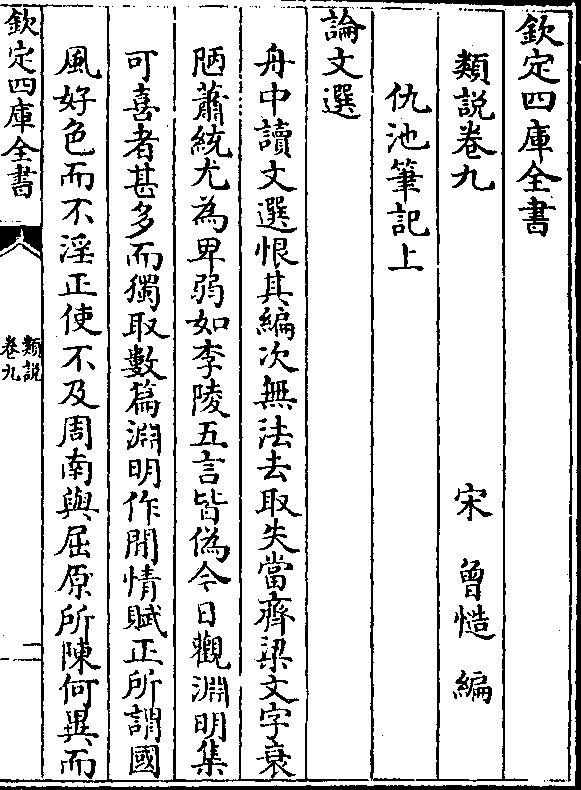 欽定四庫全書
類說卷九
宋 曾慥 編
仇池筆記上
論文選
舟中讀文選恨其編次無法去取失當齊梁文字衰
陋蕭統尤為卑弱如李陵五言皆偽今日觀淵明集
可喜者甚多而獨取數篇淵明作閒情賦正所謂國
風好色而不淫正使不及周南與屈原所陳何異而
欽定四庫全書
類說
卷九
一